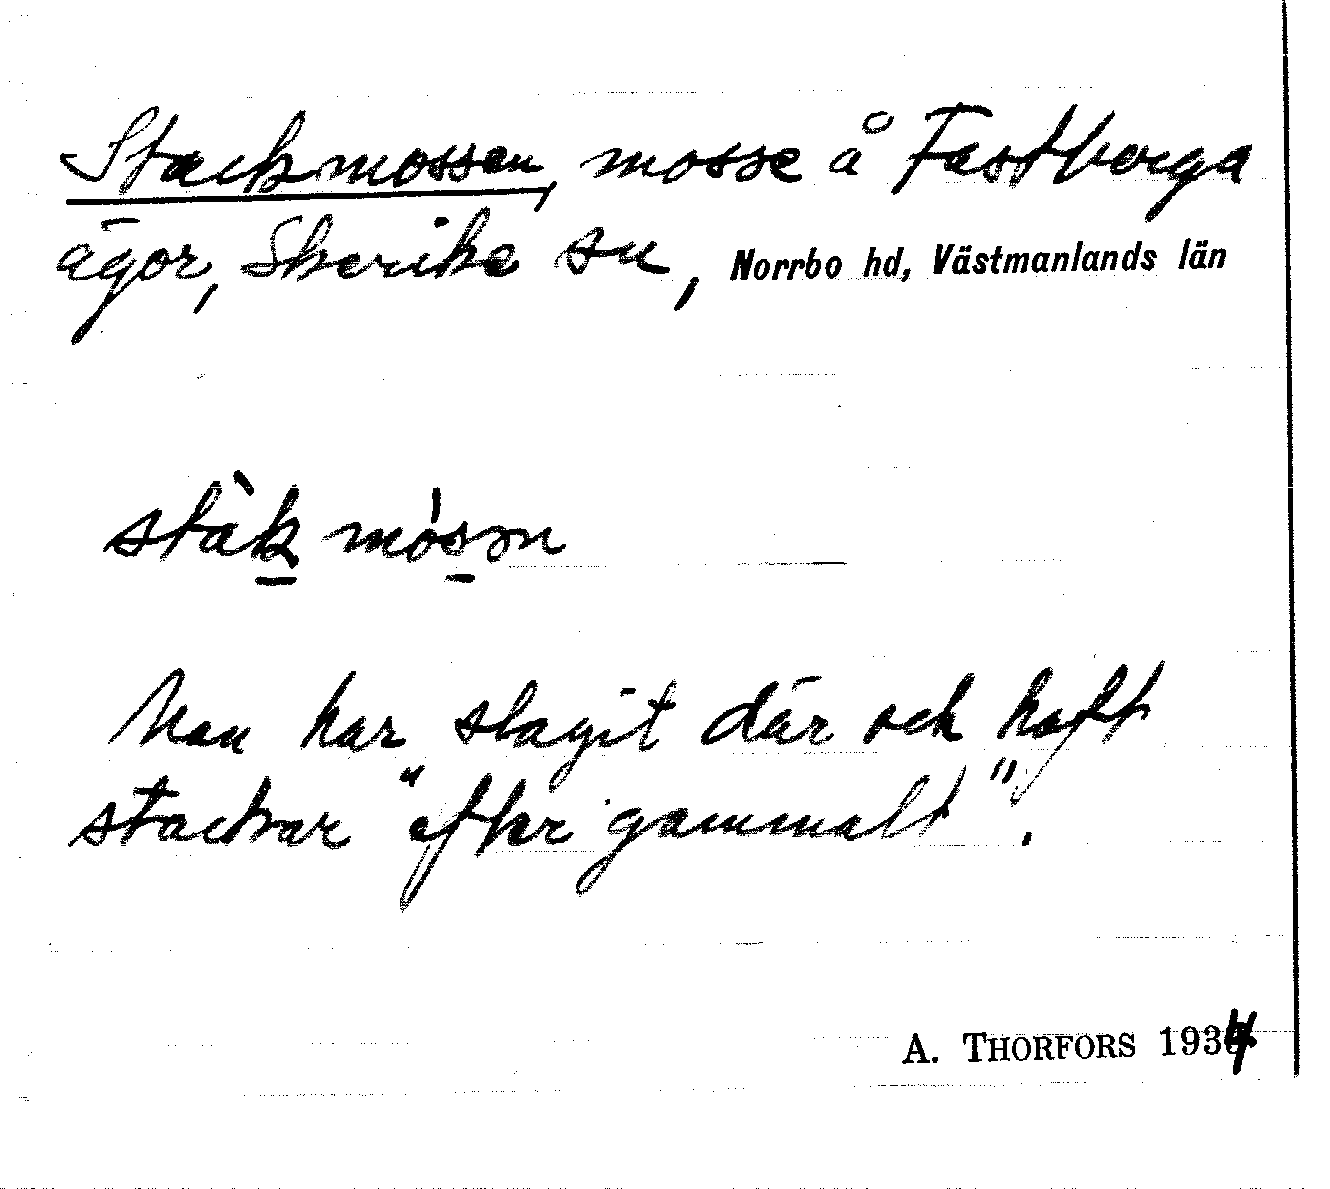 Stackmossen, mosse å Fastberga
ägor, Skerike sn, Norrbo hd, Västmanlands län
stàk mósɔn
Man har slagit där och haft
stackar "efter gammalt".
A. THORFORS 1934